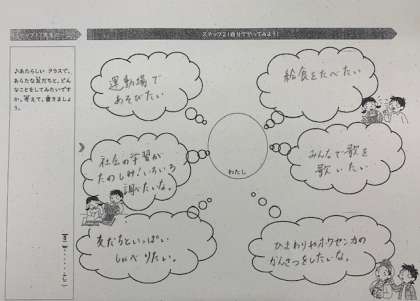 ステップ2(自分でやってみよう)
♪あたらしい クラスで、
あらたな友だちと、どん
なことをしてみたいです
か。考えて、書きましょ
う。
運動場で
あそびたい
給食をたべたい
社会の学習が
たのしみ!いろいろ
調べたいな。
わたし
みんなで歌を
歌いたい
友だちといっぱい
しゃべりたい。
ひまわりやホウセンカの
かんさつをしたいな。